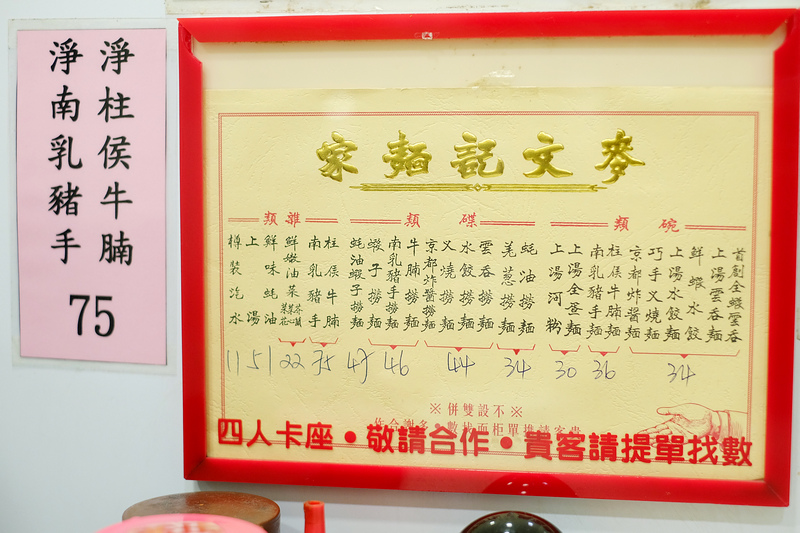 淨柱侯牛腩
淨南乳豬手
75
麥文記麵家
碗類
首創全蝦雲吞
上湯雲吞麵
鮮蝦水餃
上湯水餃麵
巧手叉燒麵
京都炸醬麵
34
柱侯牛腩麵
南乳豬手麵
36
上湯全蛋麵
上湯河粉
30
碟類
蚝油撈麵
羗蔥撈麵
34
雲吞撈麵
水餃撈麵
叉燒撈麵
京都炸醬撈麵
44
牛腩撈麵
南乳豬手撈麵
46
蝦子撈麵
蚝油蝦子撈麵
47
雜類
柱侯牛腩
南乳豬手
75
鮮嫩油菜
22
鮮味蚝油
1
上湯
5
樽裝汽水
11
※不設雙併※
四人卡座•敬請合作•貴客請提單找數